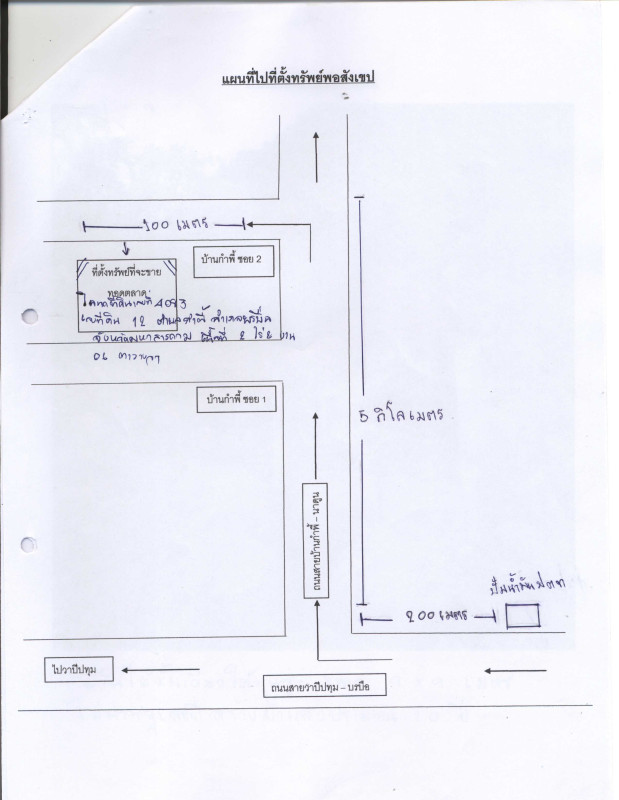 แผนที่ไปที่ตั้งทรัพย์พอสังเขป
100 เมตร
ที่ตั้งทรัพย์ที่จะขาย
ทอดตลาด
บ้านกำพี้ ซอย 2
โฉนดที่ดินเลขที่ 4093
เลขที่ดิน 12 ตำบลกำพี้ อำเภอบรบือ
จังหวัดมหาสารคาม เนื้อที่ 2 ไร่ 2 งาน
06 ตารางวา
บ้านกำพี้ ซอย 1
5 กิโลเมตร
ถนนสายบ้านกำพี้ – นาดูน
ปั๊มน้ำมัน ปตท
200 เมตร
ไปวาปีปทุม
ถนนสายวาปีปทุม – บรบือ